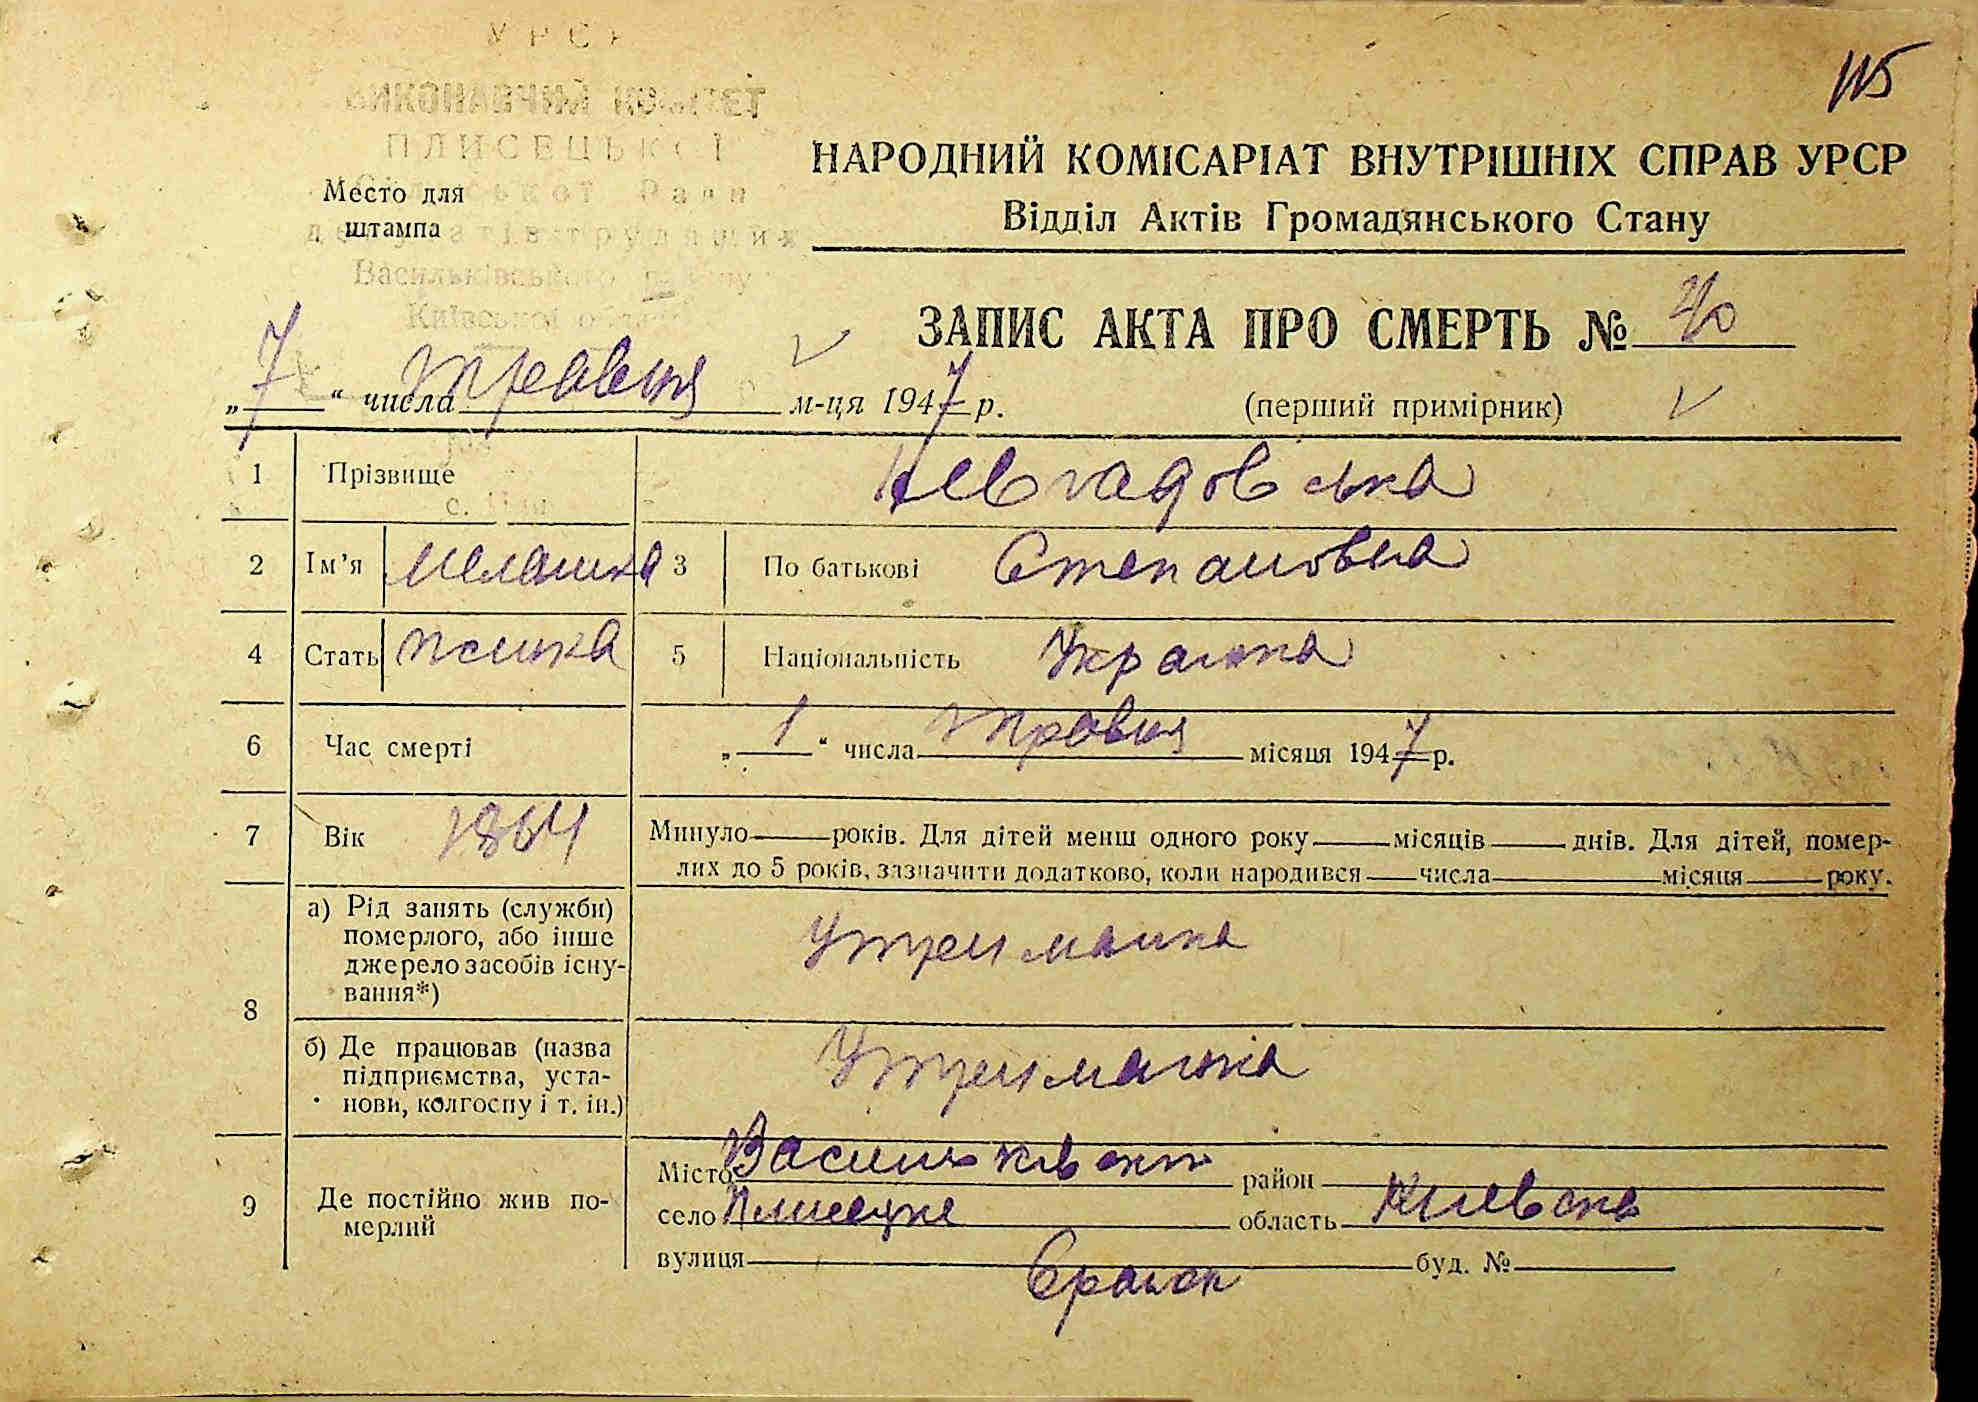 115
УРСР
ВИКОНАВЧИЙ КОМІТЕТ
ПЛИСЕЦЬКОЇ
Сільської Ради
депутатів трудящих
Васильківського району
Київської області
Место для
штампа
НАРОДНИЙ КОМІСАРІАТ ВНУТРІШНІХ СПРАВ УРСР
Відділ Актів Громадянського Стану
ЗАПИС АКТА ПРО СМЕРТЬ №
„7“ числа травня м-ця 1947 р. (перший примірник)
1 Прізвище
2 Ім'я Мелашка 3 По батькові Степановна
4 Стать жінка 5 Національність Украінка
6 Час смерті „1“ числа травня місяця 1947 р.
7 Вік 1864 Минуло років. Для дітей менш одного року місяців днів. Для дітей, помер-
лих до 5 років, зазначити додатково, коли народився числа місяця року.
8 а) Рід занять (служби)
померлого, або інше
джерело засобів існу-
вання*)
Утриманка
б) Де працював (назва
підприємства, уста-
нови, колгоспу і т. ін.)
Утриманка
9 Де постійно жив по-
мерлий
Місто Васильківский район
село Плисецке область Киевска
вулиця буд. №